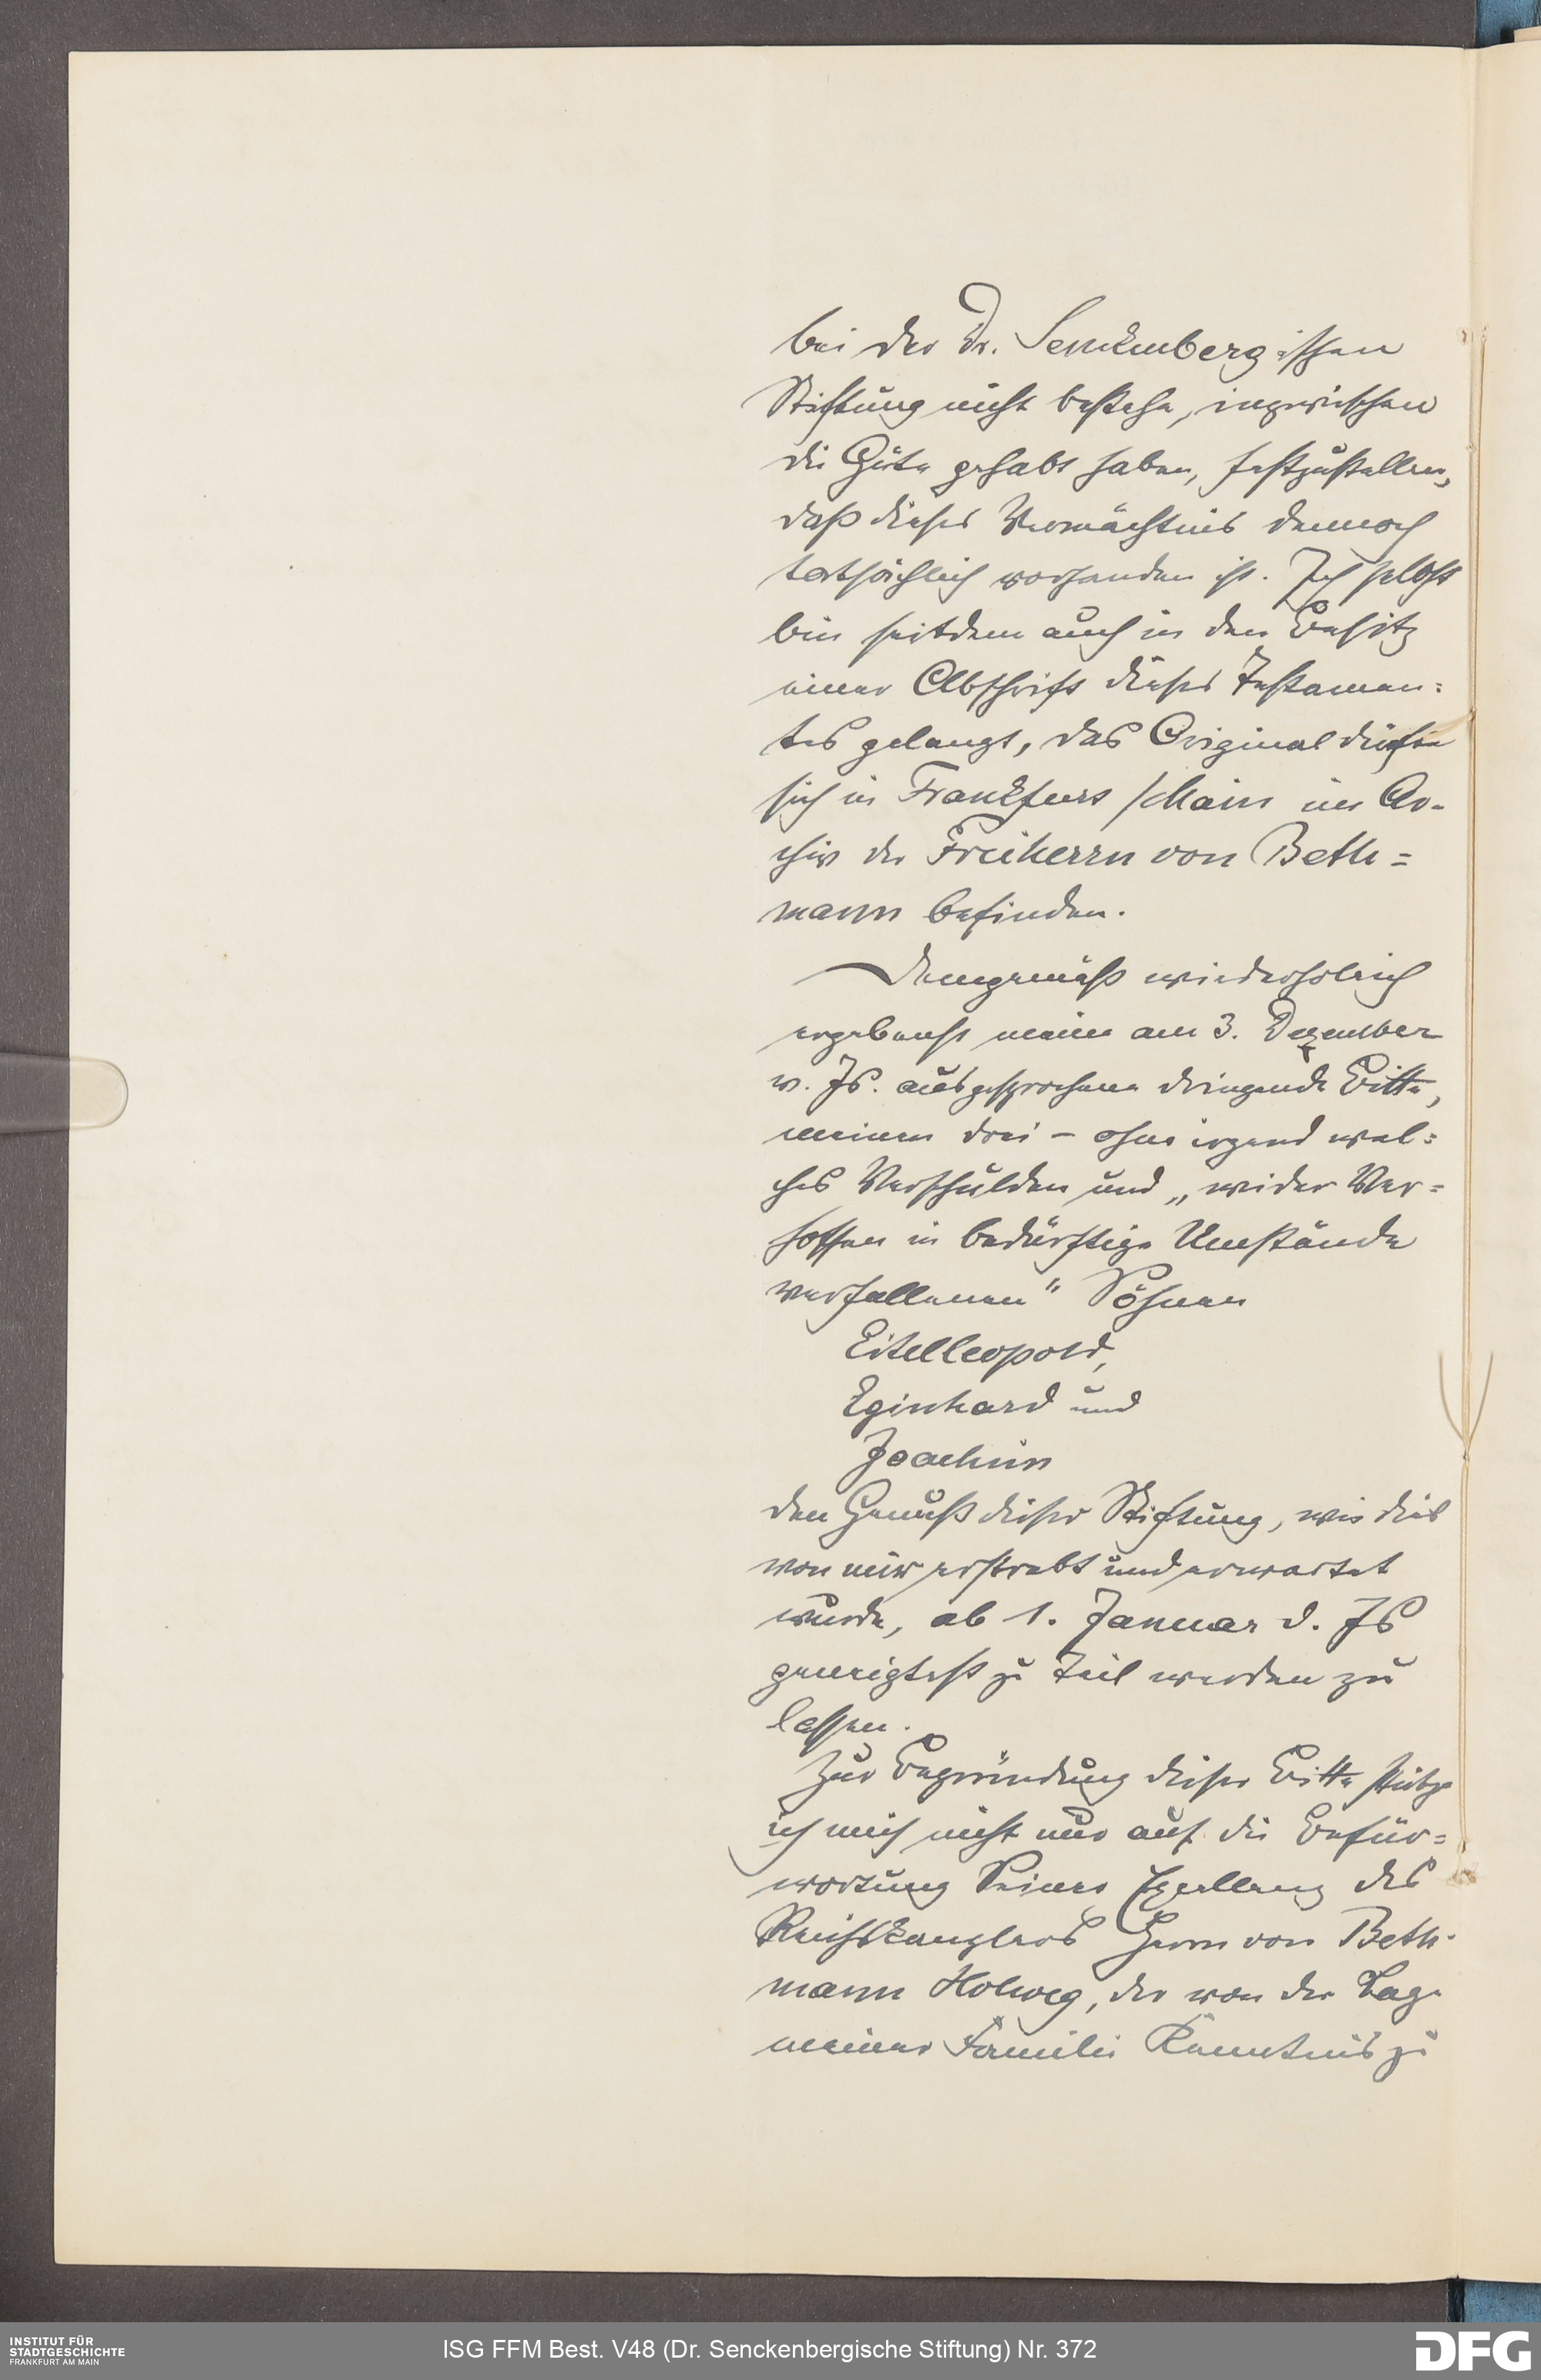 bei der Dr. Senckenbergischen
Stiftung nicht bestehe, inzwischen
die Güte gehabt haben, festzustellen,
daß dieses Vermächtnis dennoch
tatsächlich vorhanden ist. Ich selbst
bin seitdem auch in den Besitz
einer Abschrift dieses Testamen=
tes gelangt, das Original dürfte
sich in Frankfurt /Main im Ar-
chiv der Freiherrn von Beth=
mann befinden.
Demgemäß wiederhole ich
ergebenst meine am 3. Dezember
v. Js. ausgesprochene dringende Bitte,
meinen drei – ohne irgend wel=
ches Verschulden und „wider Ver=
hoffen in bedürftige Umstände
verfallenen" Söhnen
Eitelleopold,
Eginhard und
Joachim
den Genuß dieser Stiftung, wie dies
von mir erstrebt und erwartet
wurde, ab 1. Januar d. Js
geneigtest zu Teil werden zu
lassen.
Zur Begründung dieser Bitte stütze
ich mich nicht nur auf die Befür=
wortung Seiner Exzellenz des
Reichskanzlers Herrn von Beth-
mann Holweg, der von der Lage
meiner Familie Kenntnis zu
INSTITUT FÜR
STADTGESCHICHTE
FRANKFURT AM MAIN
ISG FFM Best. V48 (Dr. Senckenbergische Stiftung) Nr. 372
DFG